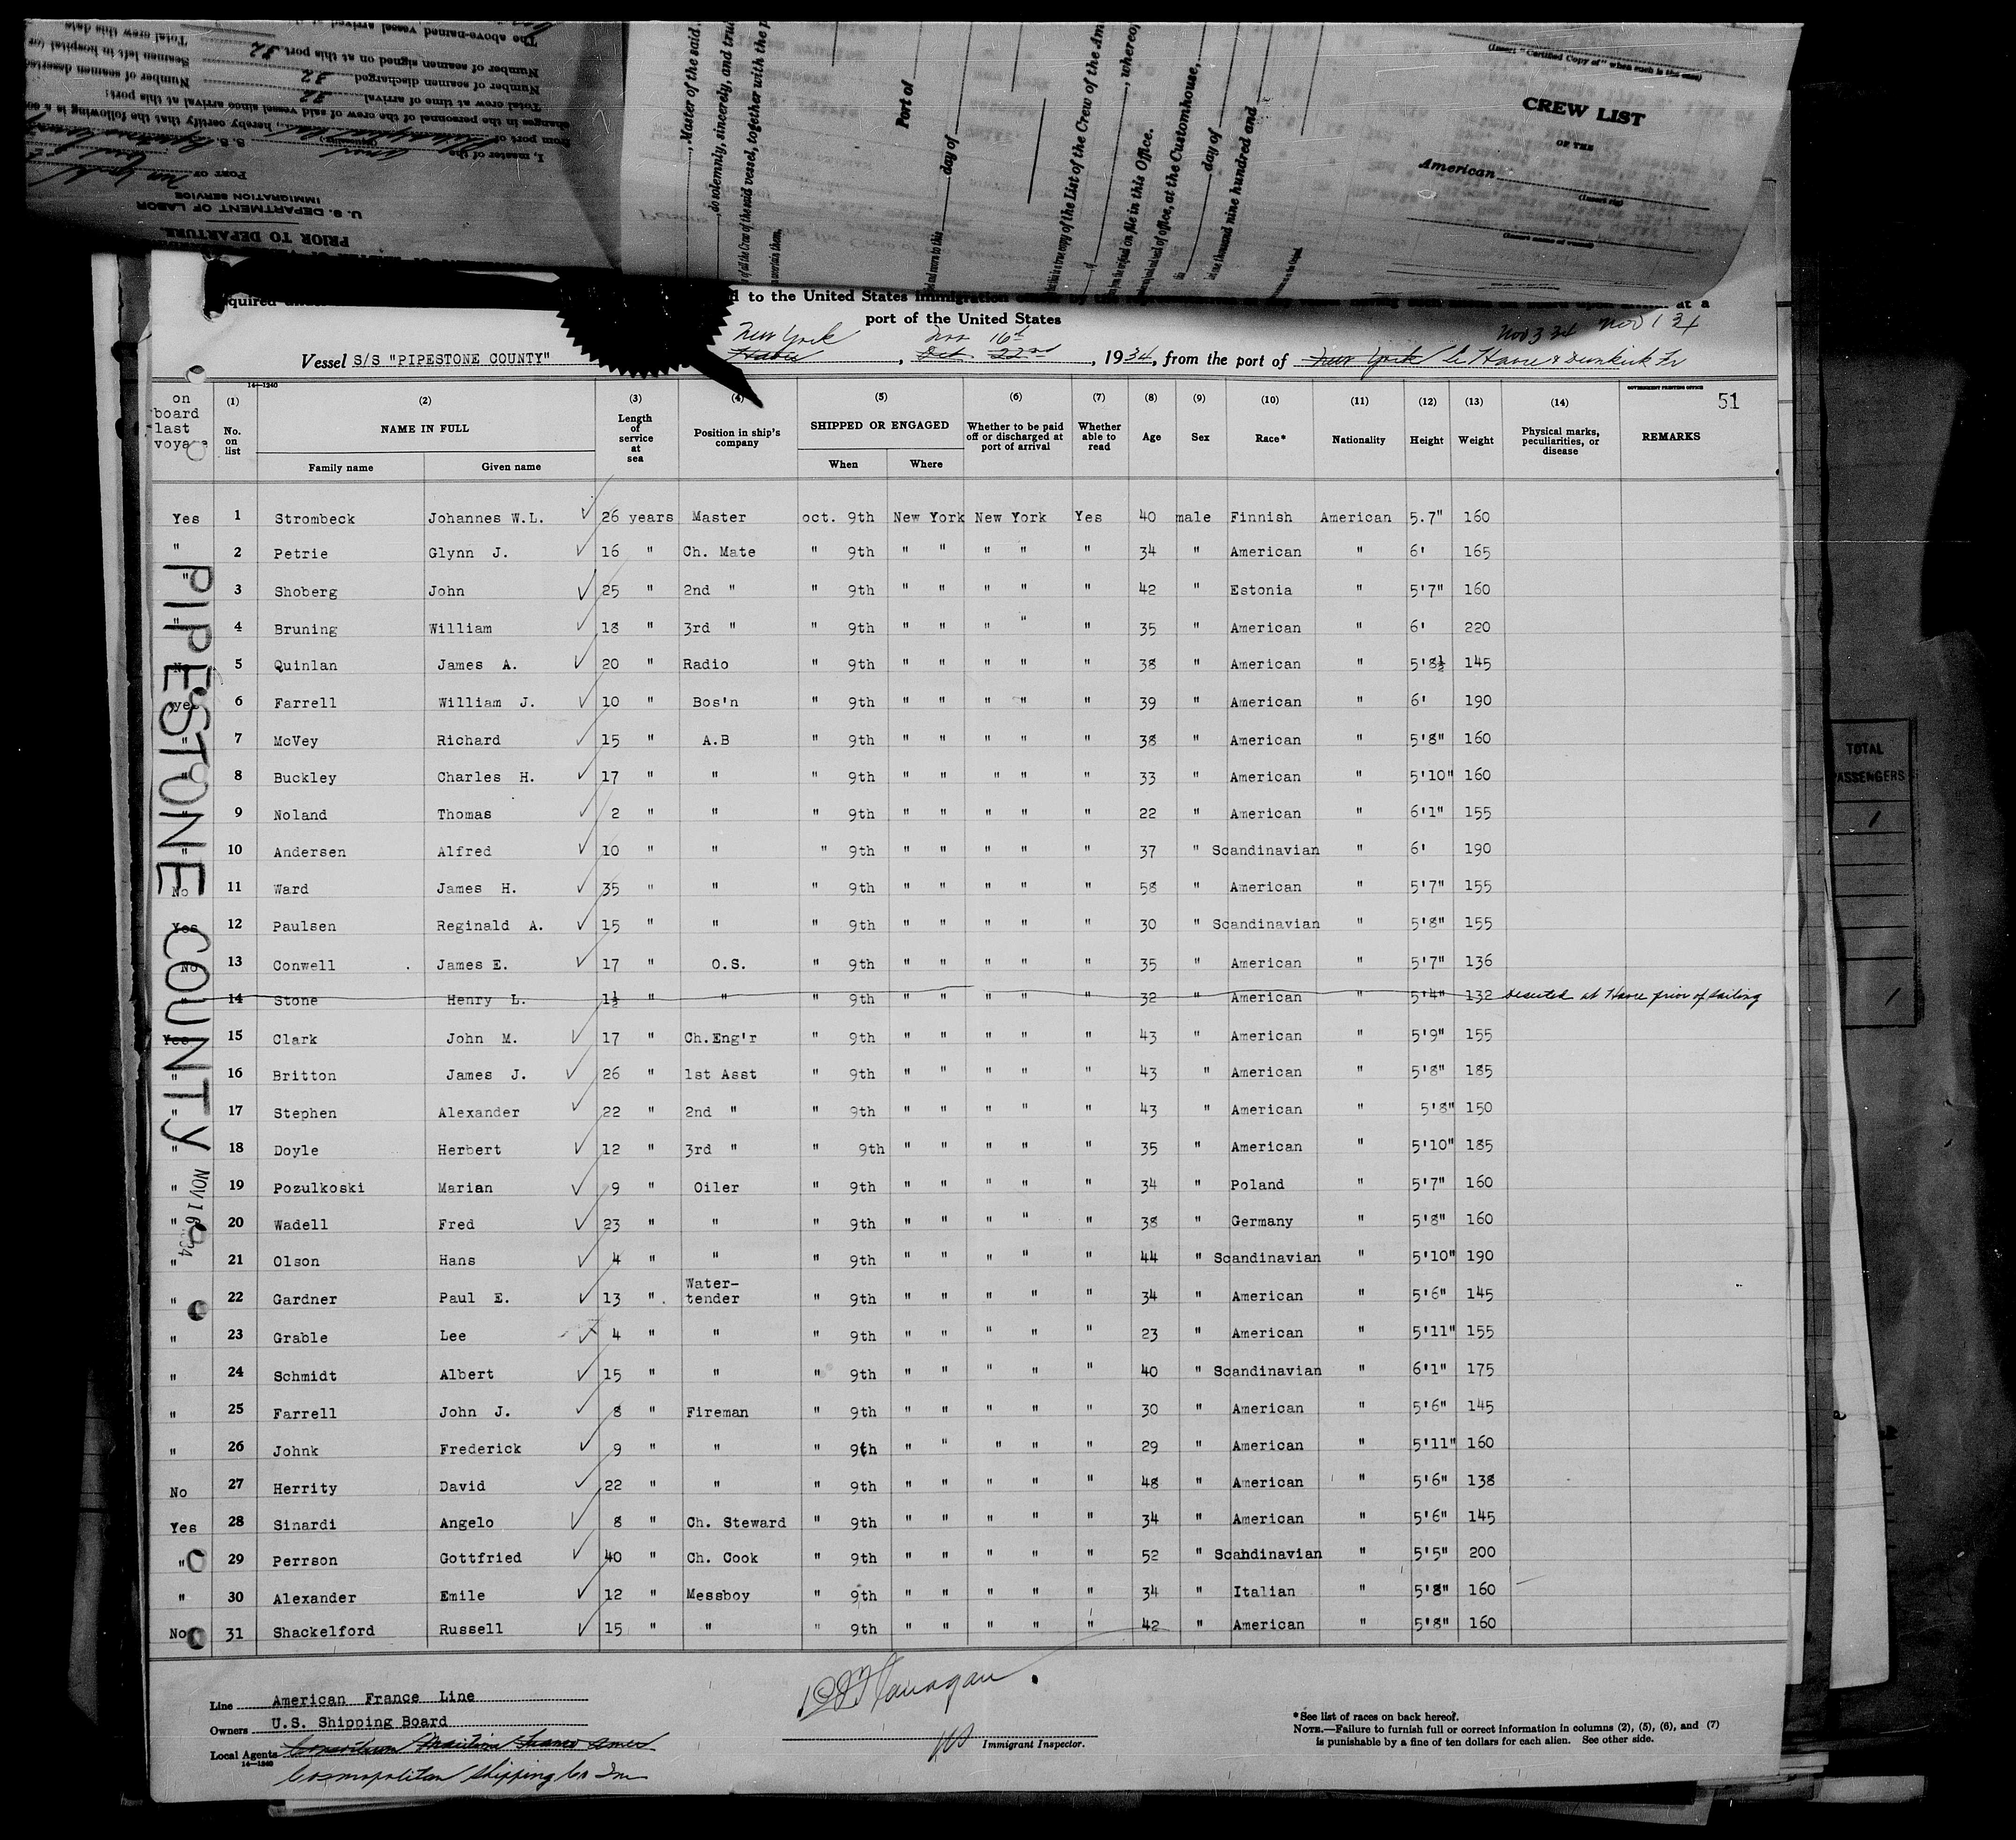 PRIOR TO DEPARTURE
U. S. DEPARTMENT OF LABOR
IMMIGRATION SERVICE
PORT OF New York
I, master of the
from port of
, hereby certify that the following is a
changes in the personnel of the crew of said vessel since arrival at this port:
Total crew at time of arrival 32
Number of seamen deserted
Number of seamen discharged 32
Number of seamen left in hospital
Number of seamen signed on at this port 32
Total crew this date
The above-named vessel arrived at
, Master of the said
, do solemnly, sincerely, and
of all the Crew of the said vessel, together with the
Port of
day of
this is a true copy of the List of the Crew of the
, whereof
on file in this Office.
of office, at the Customhouse,
day of
nine hundred and
(Insert "Certified Copy of" when such is the case)
CREW LIST
OF THE
American
(Insert rig)
(Insert name of vessel)
to the United States Immigration
at a
port of the United States
Nov 3 34 Nov 1 34
Vessel S/S "PIPESTONE COUNTY" New York Havre, Nov 16th Oct 22nd, 1934, from the port of New York Le Havre & Dunkirk Fr
14—1240
GOVERNMENT PRINTING OFFICE
51
on board last voyage
(1) No. on list
(2) NAME IN FULL
Family name Given name
(3) Length of service at sea
(4) Position in ship's company
(5) SHIPPED OR ENGAGED
When Where
(6) Whether to be paid off or discharged at port of arrival
(7) Whether able to read
(8) Age
(9) Sex
(10) Race*
(11) Nationality
(12) Height
(13) Weight
(14) Physical marks, peculiarities, or disease
REMARKS
Yes 1 Strombeck Johannes W.L. 26 years Master oct. 9th New York New York Yes 40 male Finnish American 5.7" 160
" 2 Petrie Glynn J. 16 " Ch. Mate " 9th " " " " " 34 " American " 6' 165
" 3 Shoberg John 25 " 2nd " " 9th " " " " " 42 " Estonia " 5'7" 160
4 Bruning William 18 " 3rd " " 9th " " " " " 35 " American " 6' 220
No 5 Quinlan James A. 20 " Radio " 9th " " " " " 38 " American " 5'8½ 145
yes 6 Farrell William J. 10 " Bos'n " 9th " " " " " 39 " American " 6' 190
" 7 McVey Richard 15 " A.B " 9th " " " " " 38 " American " 5'8" 160
" 8 Buckley Charles H. 17 " " " 9th " " " " " 33 " American " 5'10" 160
" 9 Noland Thomas 2 " " " 9th " " " " " 22 " American " 6'1" 155
" 10 Andersen Alfred 10 " " " 9th " " " " " 37 " Scandinavian " 6' 190
No 11 Ward James H. 35 " " " 9th " " " " " 58 " American " 5'7" 155
Yes 12 Paulsen Reginald A. 15 " " " 9th " " " " " 30 " Scandinavian " 5'8" 155
No 13 Conwell James E. 17 " O.S. " 9th " " " " " 35 " American " 5'7" 136
14 Stone Henry L. 1½ " " " 9th " " " " " 32 " American " 5'4" 132 Deserted at Havre prior of sailing
Yes 15 Clark John M. 17 " Ch.Eng'r " 9th " " " " " 43 " American " 5'9" 155
" 16 Britton James J. 26 " 1st Asst " 9th " " " " " 43 " American " 5'8" 185
" 17 Stephen Alexander 22 " 2nd " " 9th " " " " " 43 " American " 5'8" 150
" 18 Doyle Herbert 12 " 3rd " " 9th " " " " " 35 " American " 5'10" 185
" 19 Pozulkoski Marian 9 " Oiler " 9th " " " " " 34 " Poland " 5'7" 160
" 20 Wadell Fred 23 " " " 9th " " " " " 38 " Germany " 5'8" 160
" 21 Olson Hans 4 " " " 9th " " " " " 44 " Scandinavian " 5'10" 190
" 22 Gardner Paul E. 13 " Water-tender " 9th " " " " " 34 " American " 5'6" 145
" 23 Grable Lee 4 " " " 9th " " " " " 23 " American " 5'11" 155
" 24 Schmidt Albert 15 " " " 9th " " " " " 40 " Scandinavian " 6'1" 175
" 25 Farrell John J. 8 " Fireman " 9th " " " " " 30 " American " 5'6" 145
" 26 Johnk Frederick 9 " " " 9th " " " " " 29 " American " 5'11" 160
No 27 Herrity David 22 " " " 9th " " " " " 48 " American " 5'6" 138
Yes 28 Sinardi Angelo 8 " Ch. Steward " 9th " " " " " 34 " American " 5'6" 145
" 29 Perrson Gottfried 40 " Ch. Cook " 9th " " " " " 52 " Scahdinavian " 5'5" 200
" 30 Alexander Emile 12 " Messboy " 9th " " " " " 34 " Italian " 5'8" 160
No 31 Shackelford Russell 15 " " " 9th " " " " " 42 " American " 5'8" 160
PIPESTONE COUNTY
NOV 16 1934
Line American France Line
Owners U.S. Shipping Board
Local Agents Consortium Maritime Franco Amer
14—1240
Cosmopolitan Shipping Co Inc
Flanagan
Immigrant Inspector.
*See list of races on back hereof.
NOTE.—Failure to furnish full or correct information in columns (2), (5), (6), and (7)
is punishable by a fine of ten dollars for each alien. See other side.
TOTAL
PASSENGERS
1
1